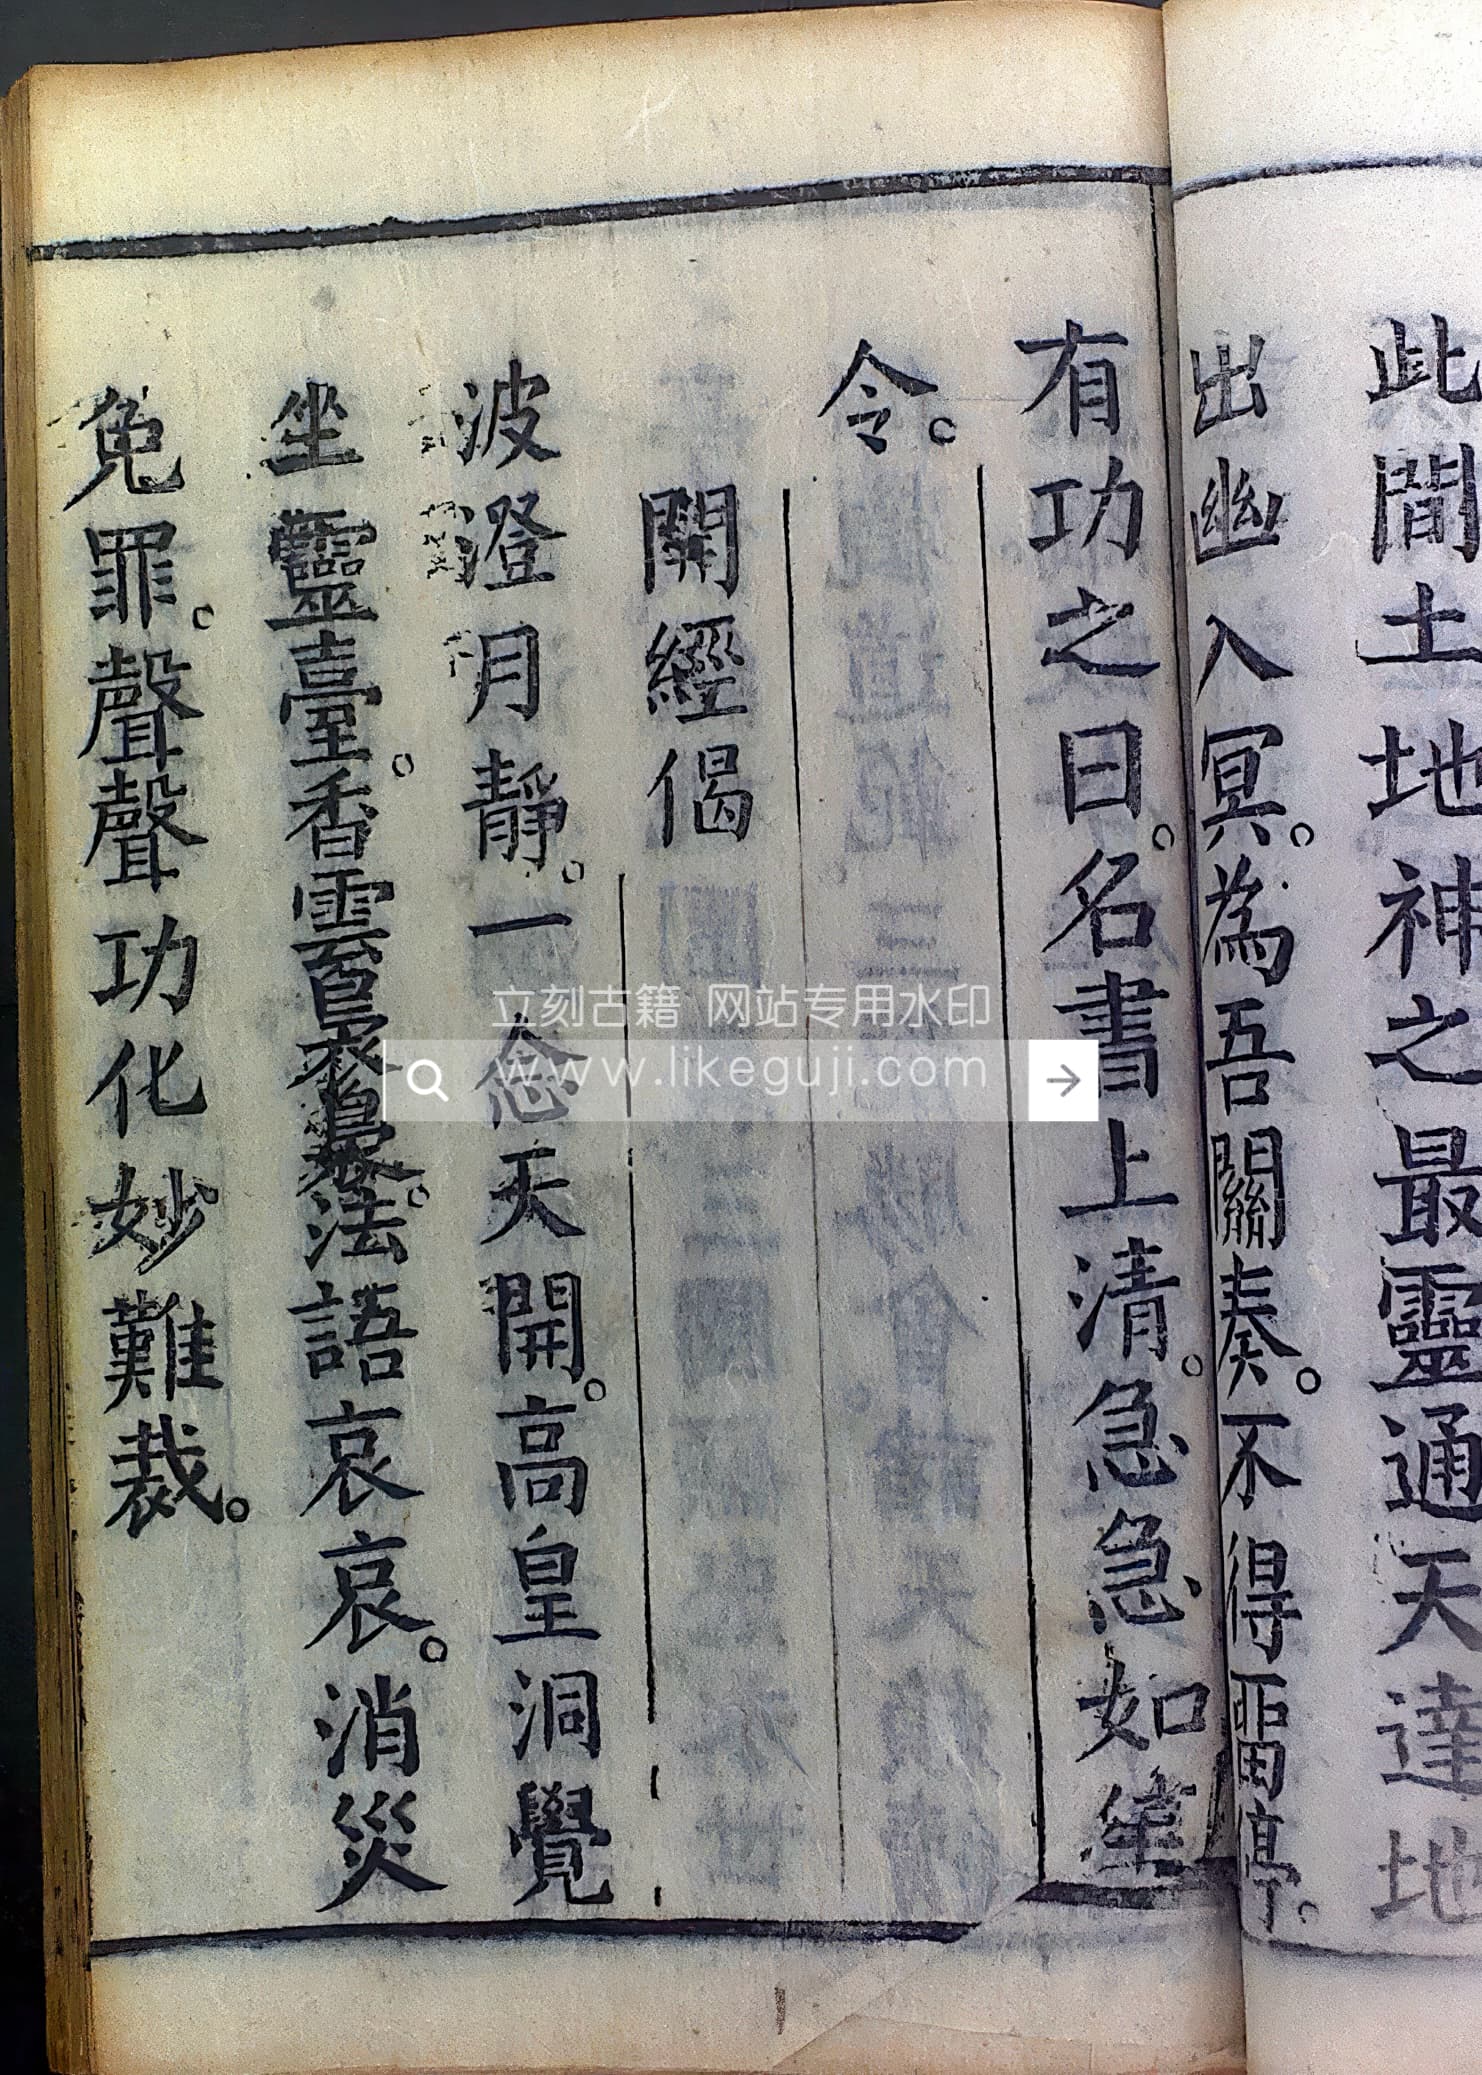 此間土地神之最靈通天達地
出幽入冥。為吾關奏。不得畱停。
有功之日。名書上清。急急如律
令。
開經偈
波澄月靜。一念天開。高皇洞覺
坐靈臺。香雲裊裊。法語哀哀。消災
免罪。聲聲功化妙難裁。
立刻古籍 网站专用水印
www.likeguji.com